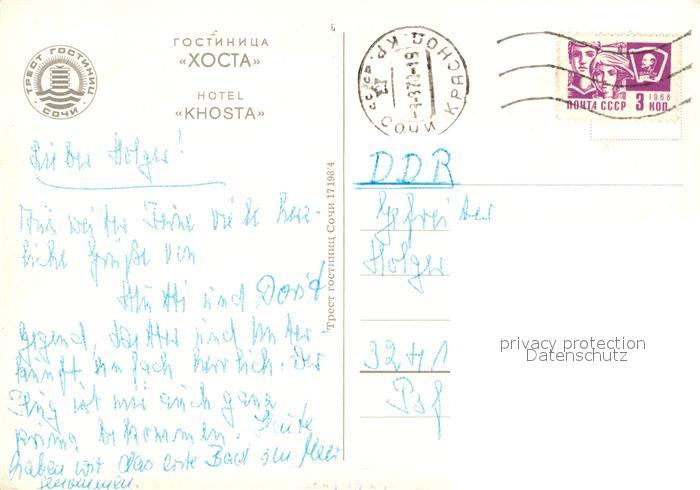 ТРЕСТ ГОСТИНИЦ
СОЧИ
ГОСТИНИЦА
«ХОСТА»
HOTEL
«KHOSTA»
Lieber Holger!
Aus weiter Ferne viele herz-
liche Grüße von
Mutti und Dorit
Gegend, Wetter und Unter-
kunft einfach herrlich. Der
Flug ist mir auch ganz
prima bekommen. Heute
haben wir das erste Bad im Meer
genommen.
Трест гостиниц Сочи 17198/4
СОЧИ КРАСНОД. КР.
ПОЧТА СССР 3 КОП.
1966
DDR
Gefreiter
Holger
3241
Psf
privacy protection
Datenschutz